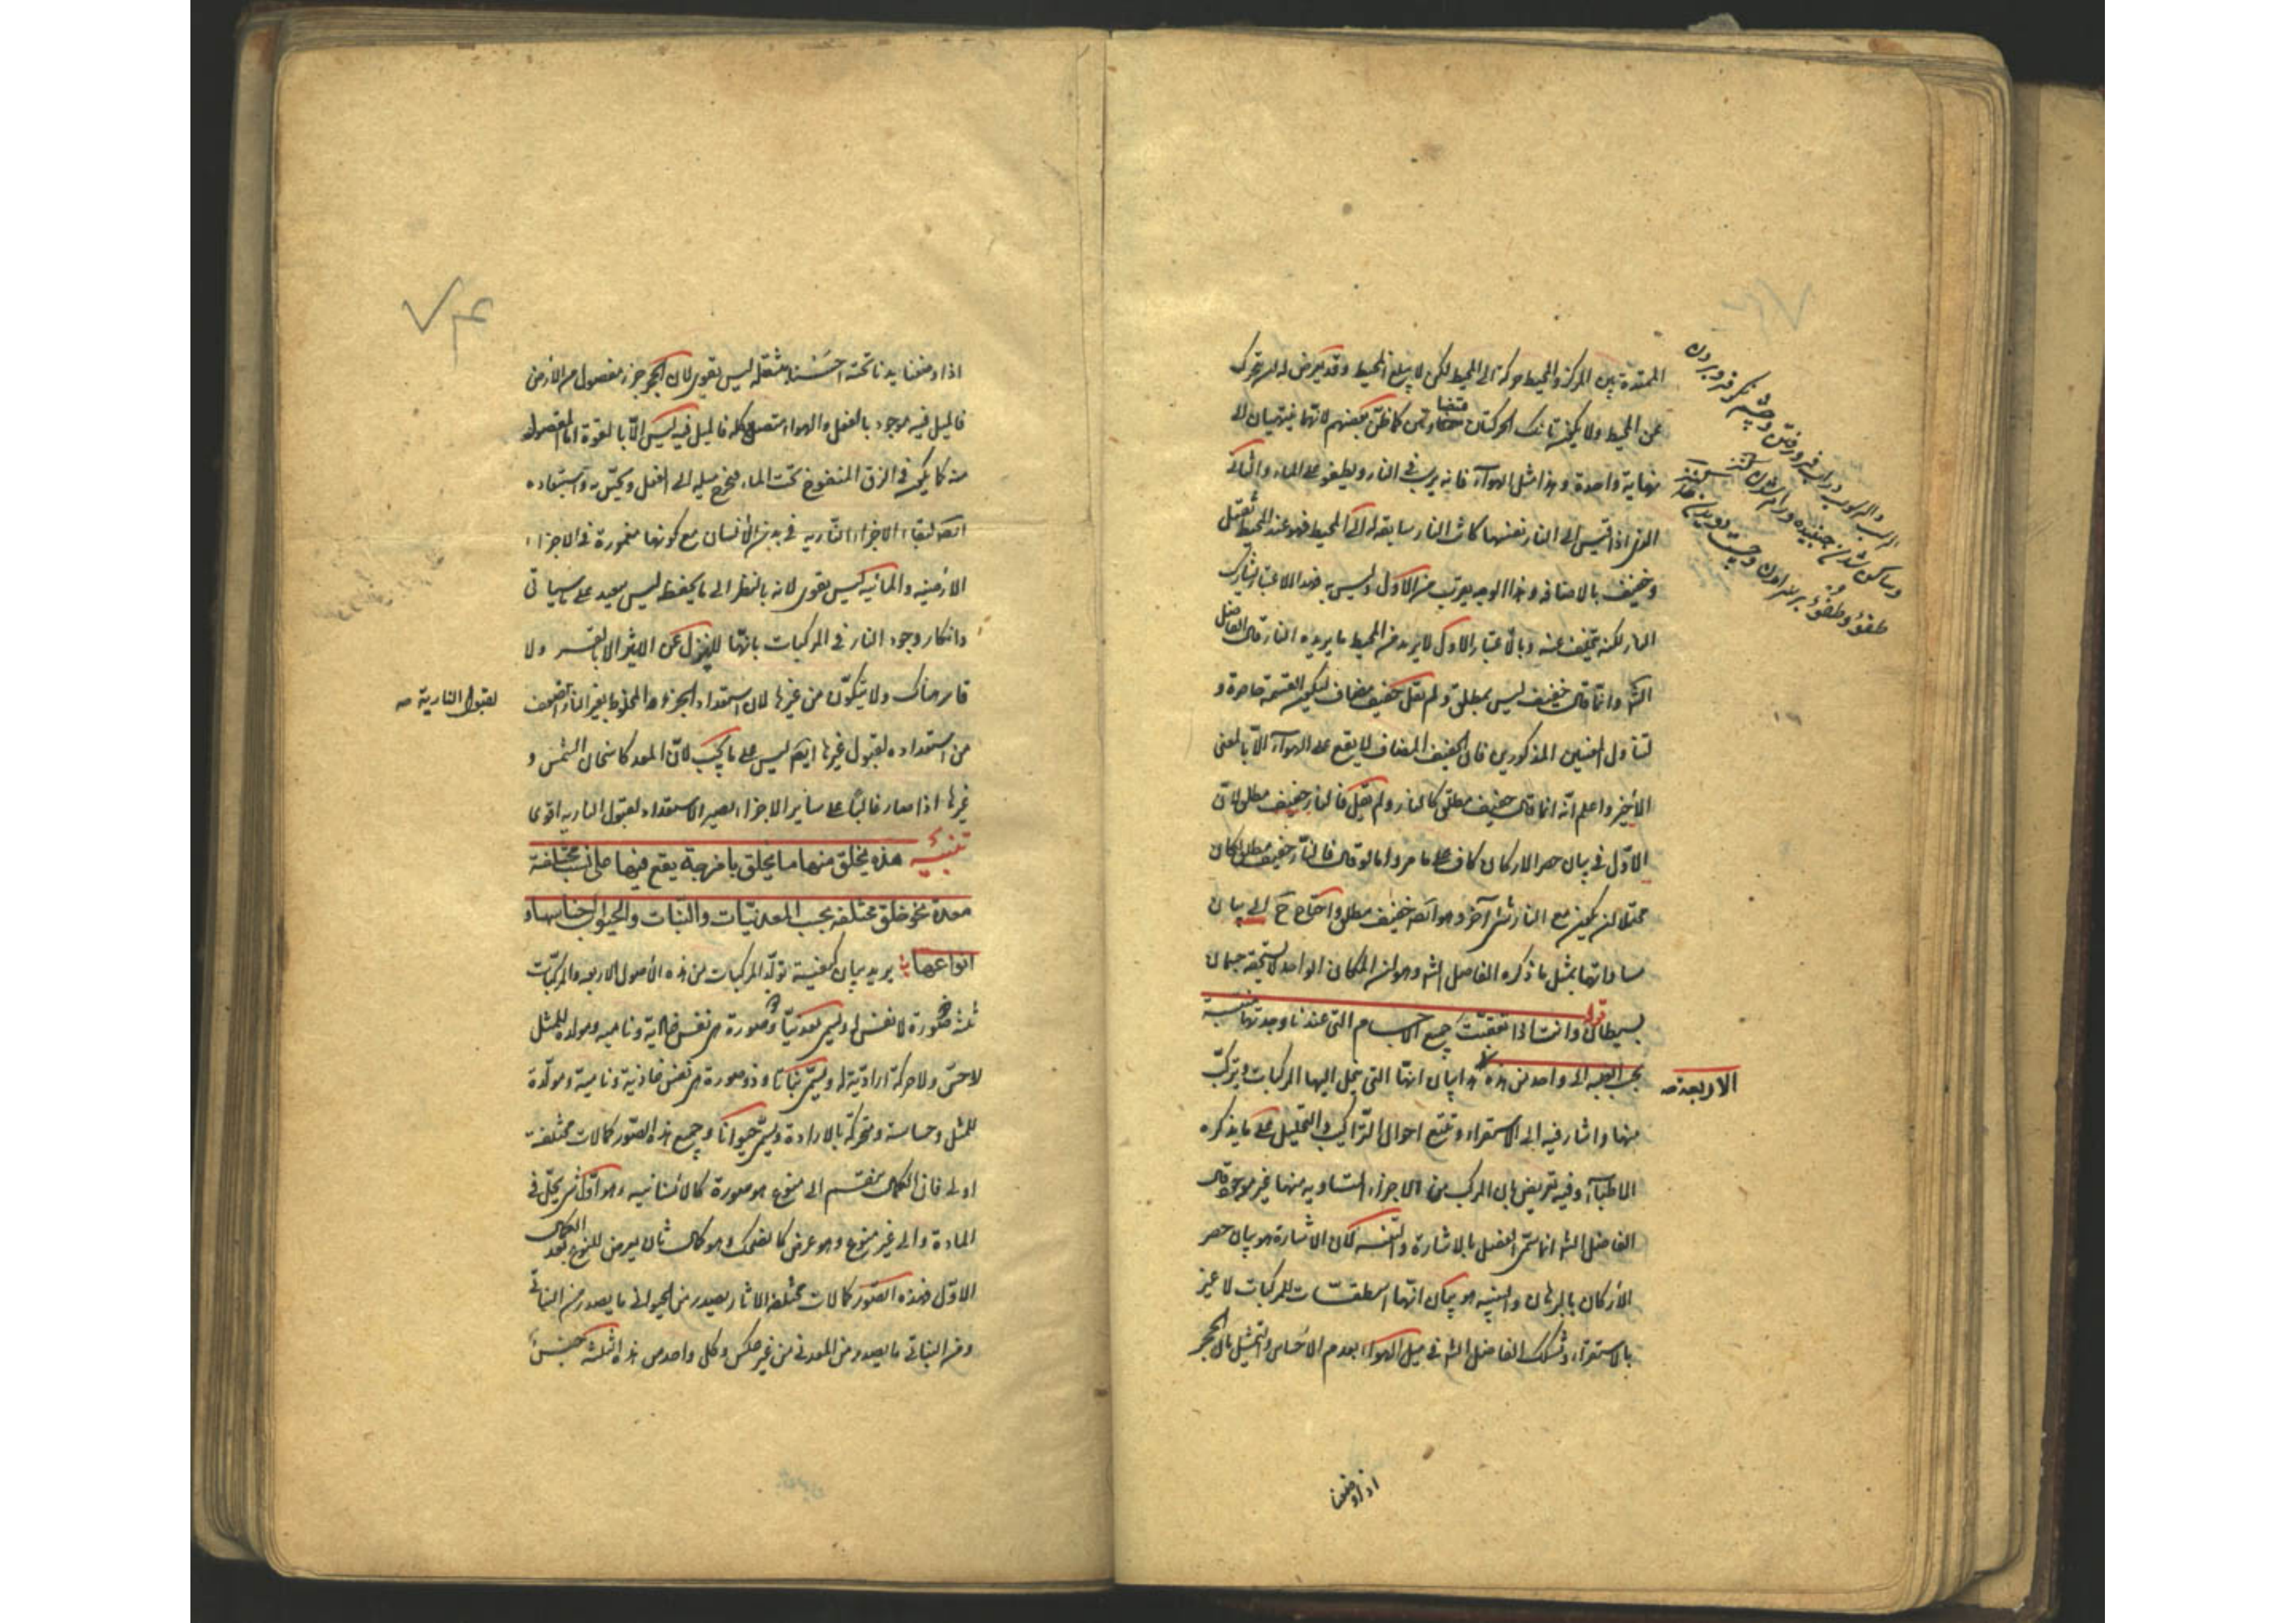 الممتدة بين المركز والمحيط حركة الى المحيط لكن لا يبلغ المحيط وقد يعرض له ان يتحرك
عن المحيط ولا يكون تانك الحركتان متضادتين كما ظن بعضهم لانهما ينتهيان الى
نهاية واحدة وهذا مثل الهواء فانه يرسب في النار ويطفو على الماء والثاني
الذي اذا قيس الى النار نفسها كانت النار سابقة له الى المحيط فهو عند المحيط ثقيل
وخفيف بالاضافة وهذا الوجه يقرب من الاول وليس به فهذا الاعتبار يشارك
النار لكنه يتخلف عنه وبالاعتبار الاول لا يريد من المحيط ما يريده النار قال الفاضل
الشه وانما قال خفيف ليس بمطلق ولم يقل خفيف مضاف ليكون القسمة حاصرة و
لتناول المعنيين المذكورين فان الخفيف المضاف لا يقع على الهواء الا بالمعنى
الاخير واعلم انه انما قال خفيف مطلق كالنار ولم يقل فالنار خفيف مطلق لان
الاول في بيان حصر الاركان كاف على ما مر واما لو قال فالنار خفيف مطلق لكان
محتملا ان يكون مع النار شئ آخر وهو ايضا خفيف مطلق واحتاج ح الى بيان
مساواتها بمثل ما ذكره الفاضل الشه وهو ان المكان الواحد لا يستحقه جسمان
بسيطان قوله وانت اذا تعقبت جميع الاجسام التي عندنا وجدتها منتسبة
بحسب الغلبة الى واحد من هذه هذا بيان انها التي ينحل اليها المركبات ويتركب
الاربعة صه
منها واشار فيه الى الاستقراء وتتبع احوال التراكيب والتحليل على ما يذكره
الاطباء وفيه تعريض بان المركب من الاجزاء المتساوية منها غير موجود قال
الفاضل الشه انما سمى الفصل بالاشارة والتنبيه لان الاشارة هو بيان حصر
الاركان بالبرهان والتنبيه هو بيان انها اسطقسات للمركبات لا غير
بالاستقراء وتشكك الفاضل الشه في ميل الهواء بعدم الاحساس والتمثيل بان الحجر
اذا وضعنا
اذا وضعنا يدنا تحته احسسنا بثقله ليس بقوى لان الحجر جزء مفصول من الارض
فالميل فيه موجود بالفعل والهواء متصل كله فالميل فيه ليس الا بالقوة اما المفصول
منه كما يكون في الزق المنفوخ تحت الماء فيخرج ميله الى الفعل ويحس به واستبعاده
ايضا لبقاء الاجزاء النارية في بدن الانسان مع كونها مغمورة في الاجزاء
الارضية والمائية ليس بقوى لانه بالنظر الى ما يحفظه ليس ببعيد على ما سيأتي
وانكار وجود النار في المركبات بانها لا تنزل عن الاثير الا بالقسر ولا
قاسر هناك ولا يتكون من غيرها لان استعداد الجزء المخلوط بغير النار اضعف
لقبول النارية صه
من استعداده لقبول غيرها ايضا ليس على ما يجب لان المعد كاسخان الشمس و
غيرها اذا صار غالبا على سائر الاجزاء يصير الاستعداد لقبول النارية اقوى
تنبيه هذه يخلق منها ما يخلق بامزجة يقع فيها على نسب مختلفة
معدة نحو خلق مختلفة بحسب المعدنيات والنبات والحيوان اجناسها و
انواعها يريد بيان كيفية تولد المركبات من هذه الاصول الاربعة والمركبات
ثلثة ذو صورة لا نفس له ويسمى معدنيا وذو صورة هي نفس غاذية ونامية ومولدة للمثل
لا حس ولا حركة ارادية له ويسمى نباتا وذو صورة هي نفس غاذية ونامية ومولدة
للمثل وحساسة ومتحركة بالارادة ويسمى حيوانا وجميع هذه الصور كمالات مختلفة
اولى فان الكمال ينقسم الى منوع هو صورة كالانسانية وهو اول شئ يحل في
المادة والى غير منوع وهو عرض كالضحك وهو كمال ثان يعرض للنوع بعد الكمال
الاول فهذه الصور كمالات مختلفة الاثار يصدر من الحيواني ما يصدر من النباتي
ومن النباتي ما يصدر من المعدني من غير عكس وكل واحد من هذه الثلثة جنس